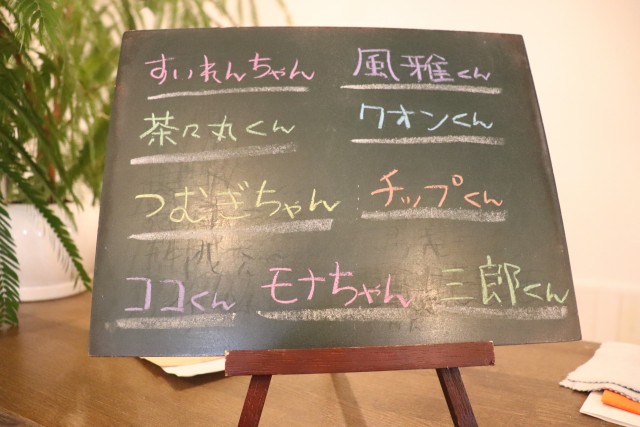 すいれんちゃん 風雅くん
茶々丸くん クオンくん
つむぎちゃん チップくん
ココくん モナちゃん 三郎くん